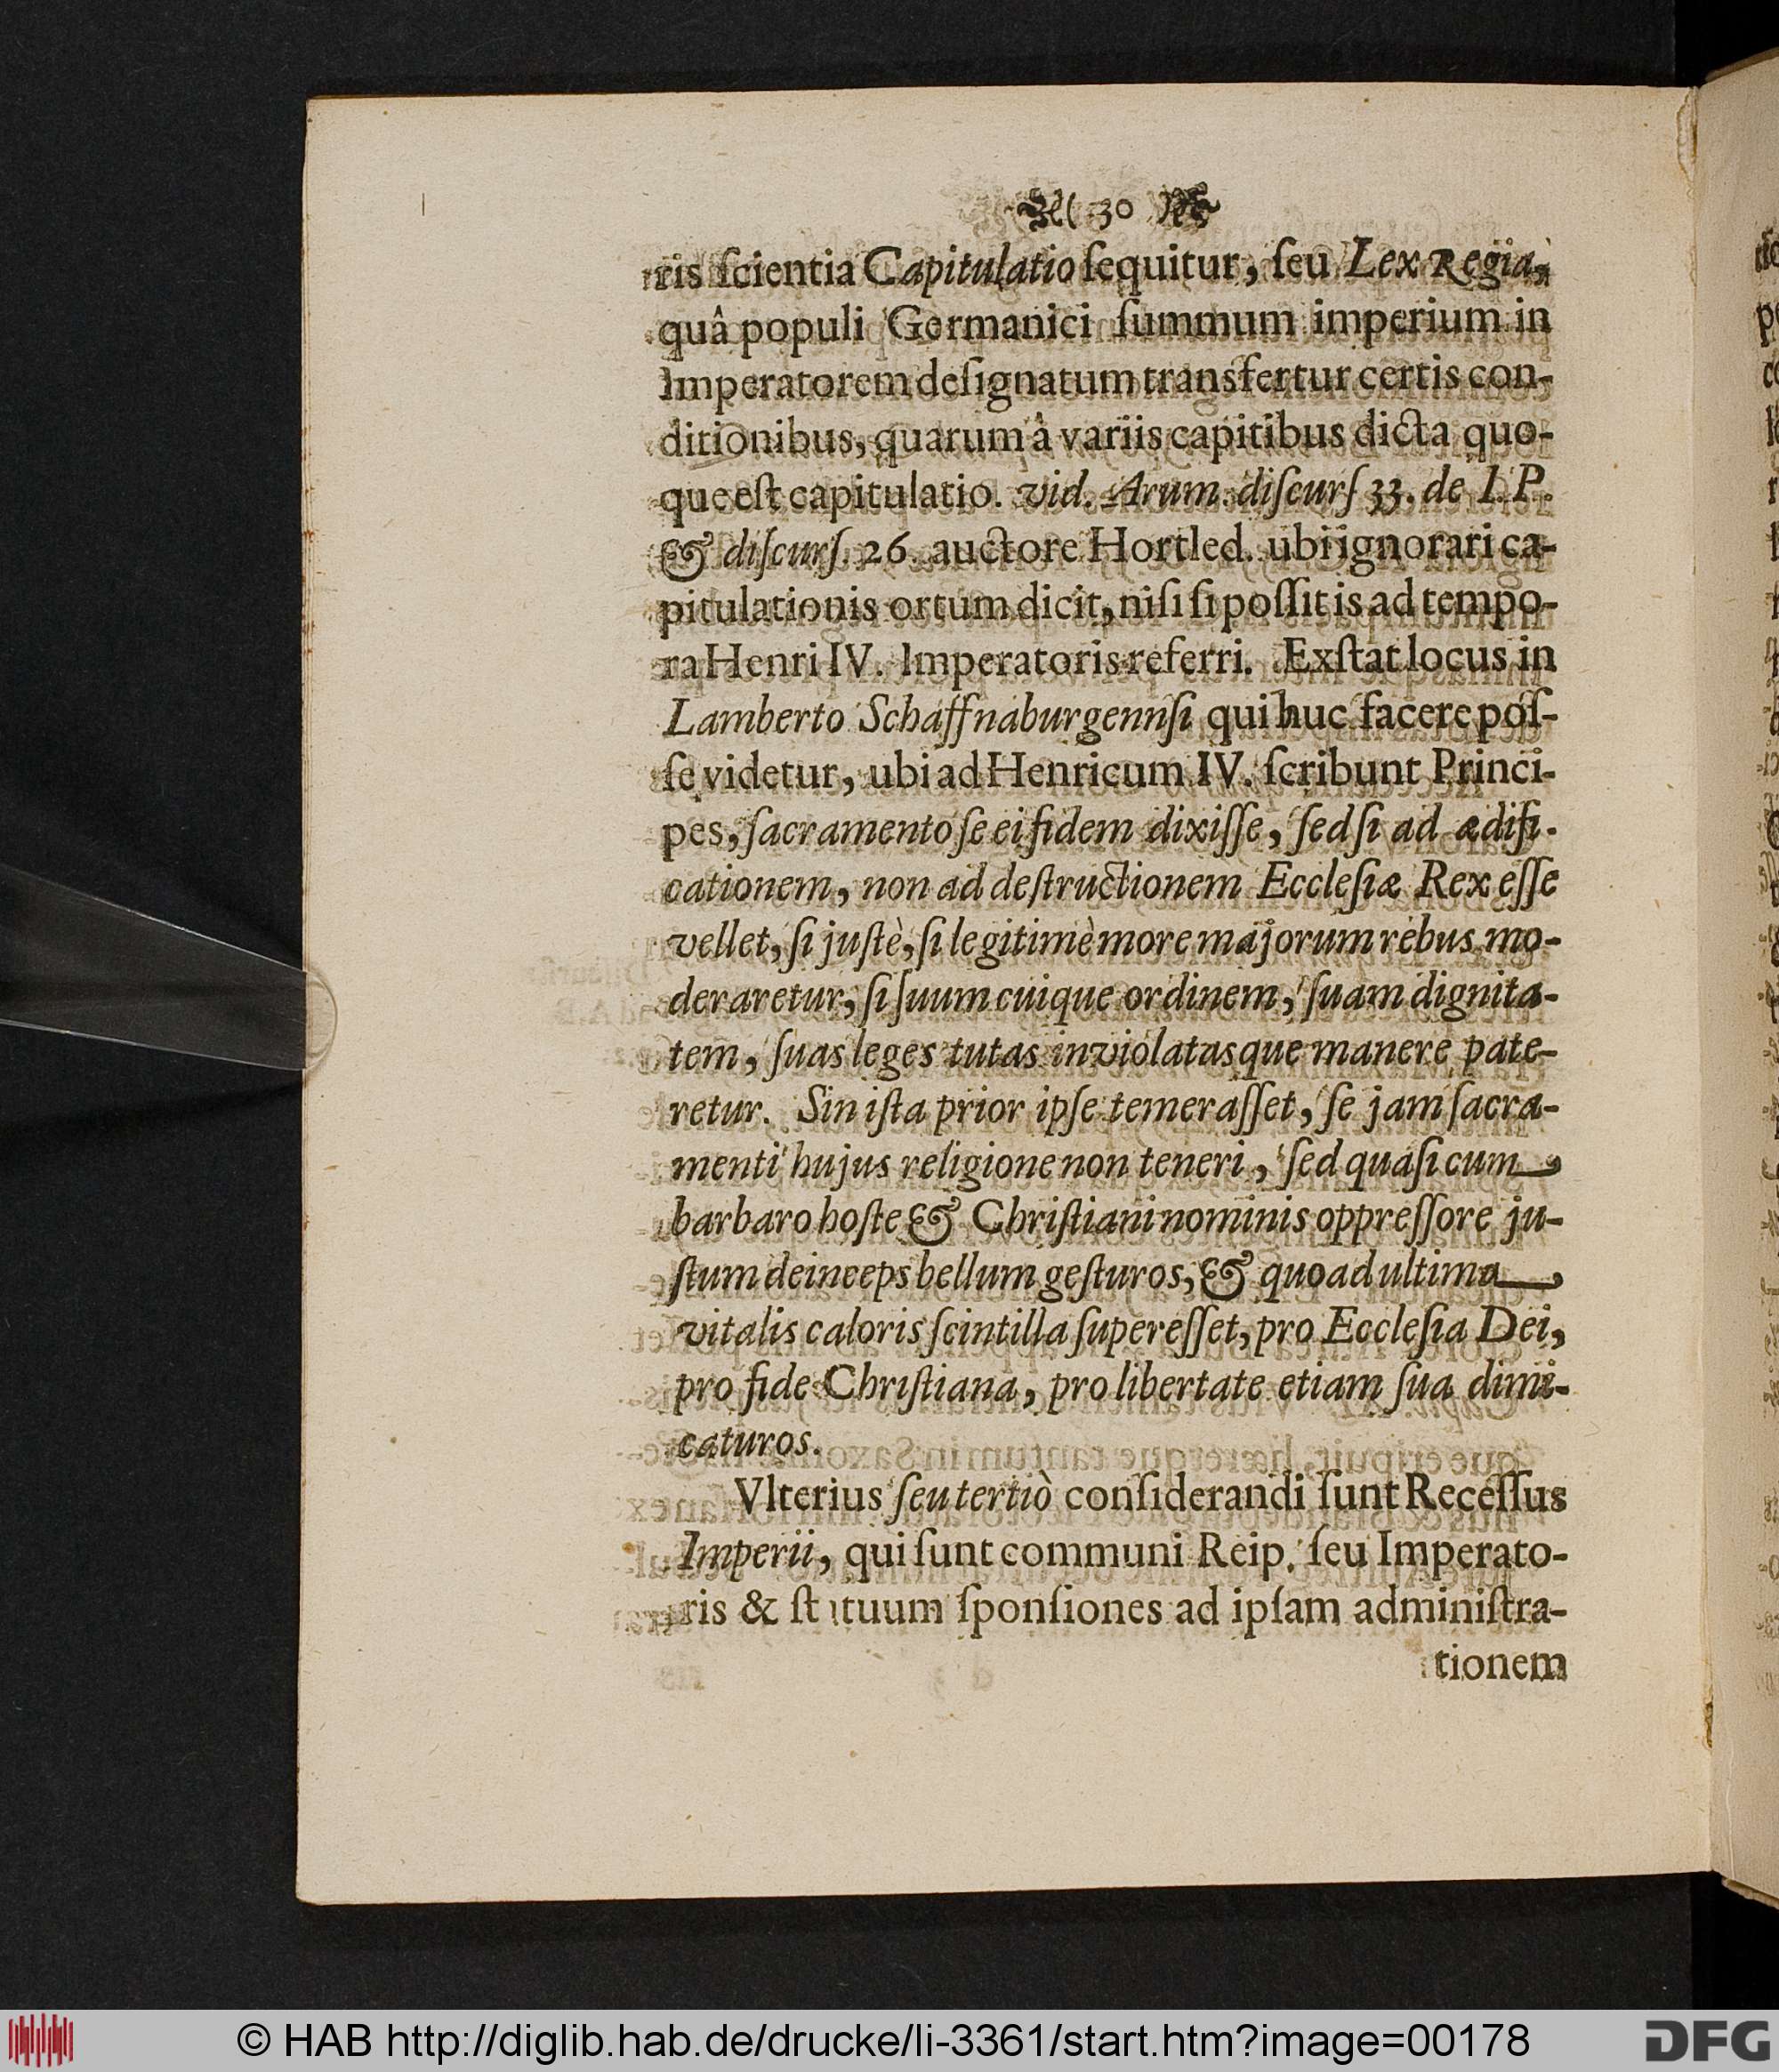 30
ris ſcientia Capitulatio ſequitur, ſeu Lex Regia,
quâ populi Germanici ſummum imperium in
Imperatorem deſignatum transfertur certis con-
ditionibus, quarum â variis capitibus dicta quo-
que eſt capitulatio. vid. Arum. diſcurſ 33. de I. P.
& diſcurſ. 26. auctore Hortled. ubi ignorari ca-
pitulationis ortum dicit, niſi ſi poſſit is ad tempo-
ra Henri IV. Imperatoris referri. Exſtat locus in
Lamberto Schaffnaburgennſi qui huc facere poſ-
ſe videtur, ubi ad Henricum IV. ſcribunt Princi-
pes, ſacramento ſe ei fidem dixiſſe, ſed ſi ad ædifi-
cationem, non ad deſtructionem Eccleſiæ Rex eſſe
vellet, ſi juſtè, ſi legitimè more majorum rebus mo-
deraretur, ſi ſuum cuique ordinem, ſuam dignita-
tem, ſuas leges tutas inviolatasque manere pate-
retur. Sin iſta prior ipſe temeraſſet, ſe jam ſacra-
menti hujus religione non teneri, ſed quaſi cum
barbaro hoſte & Chriſtiani nominis oppreſſore ju-
ſtum deinceps bellum geſturos, & quoad ultima
vitalis caloris ſcintilla ſupereſſet, pro Eccleſia Dei,
pro fide Chriſtiana, pro libertate etiam ſua dimi-
caturos.
Vlterius ſeu tertiò conſiderandi ſunt Receſſus
Imperii, qui ſunt communi Reip. ſeu Imperato-
ris & ſtatuum ſponſiones ad ipſam adminiſtra-
tionem
© HAB http://diglib.hab.de/drucke/li-3361/start.htm?image=00178
DFG